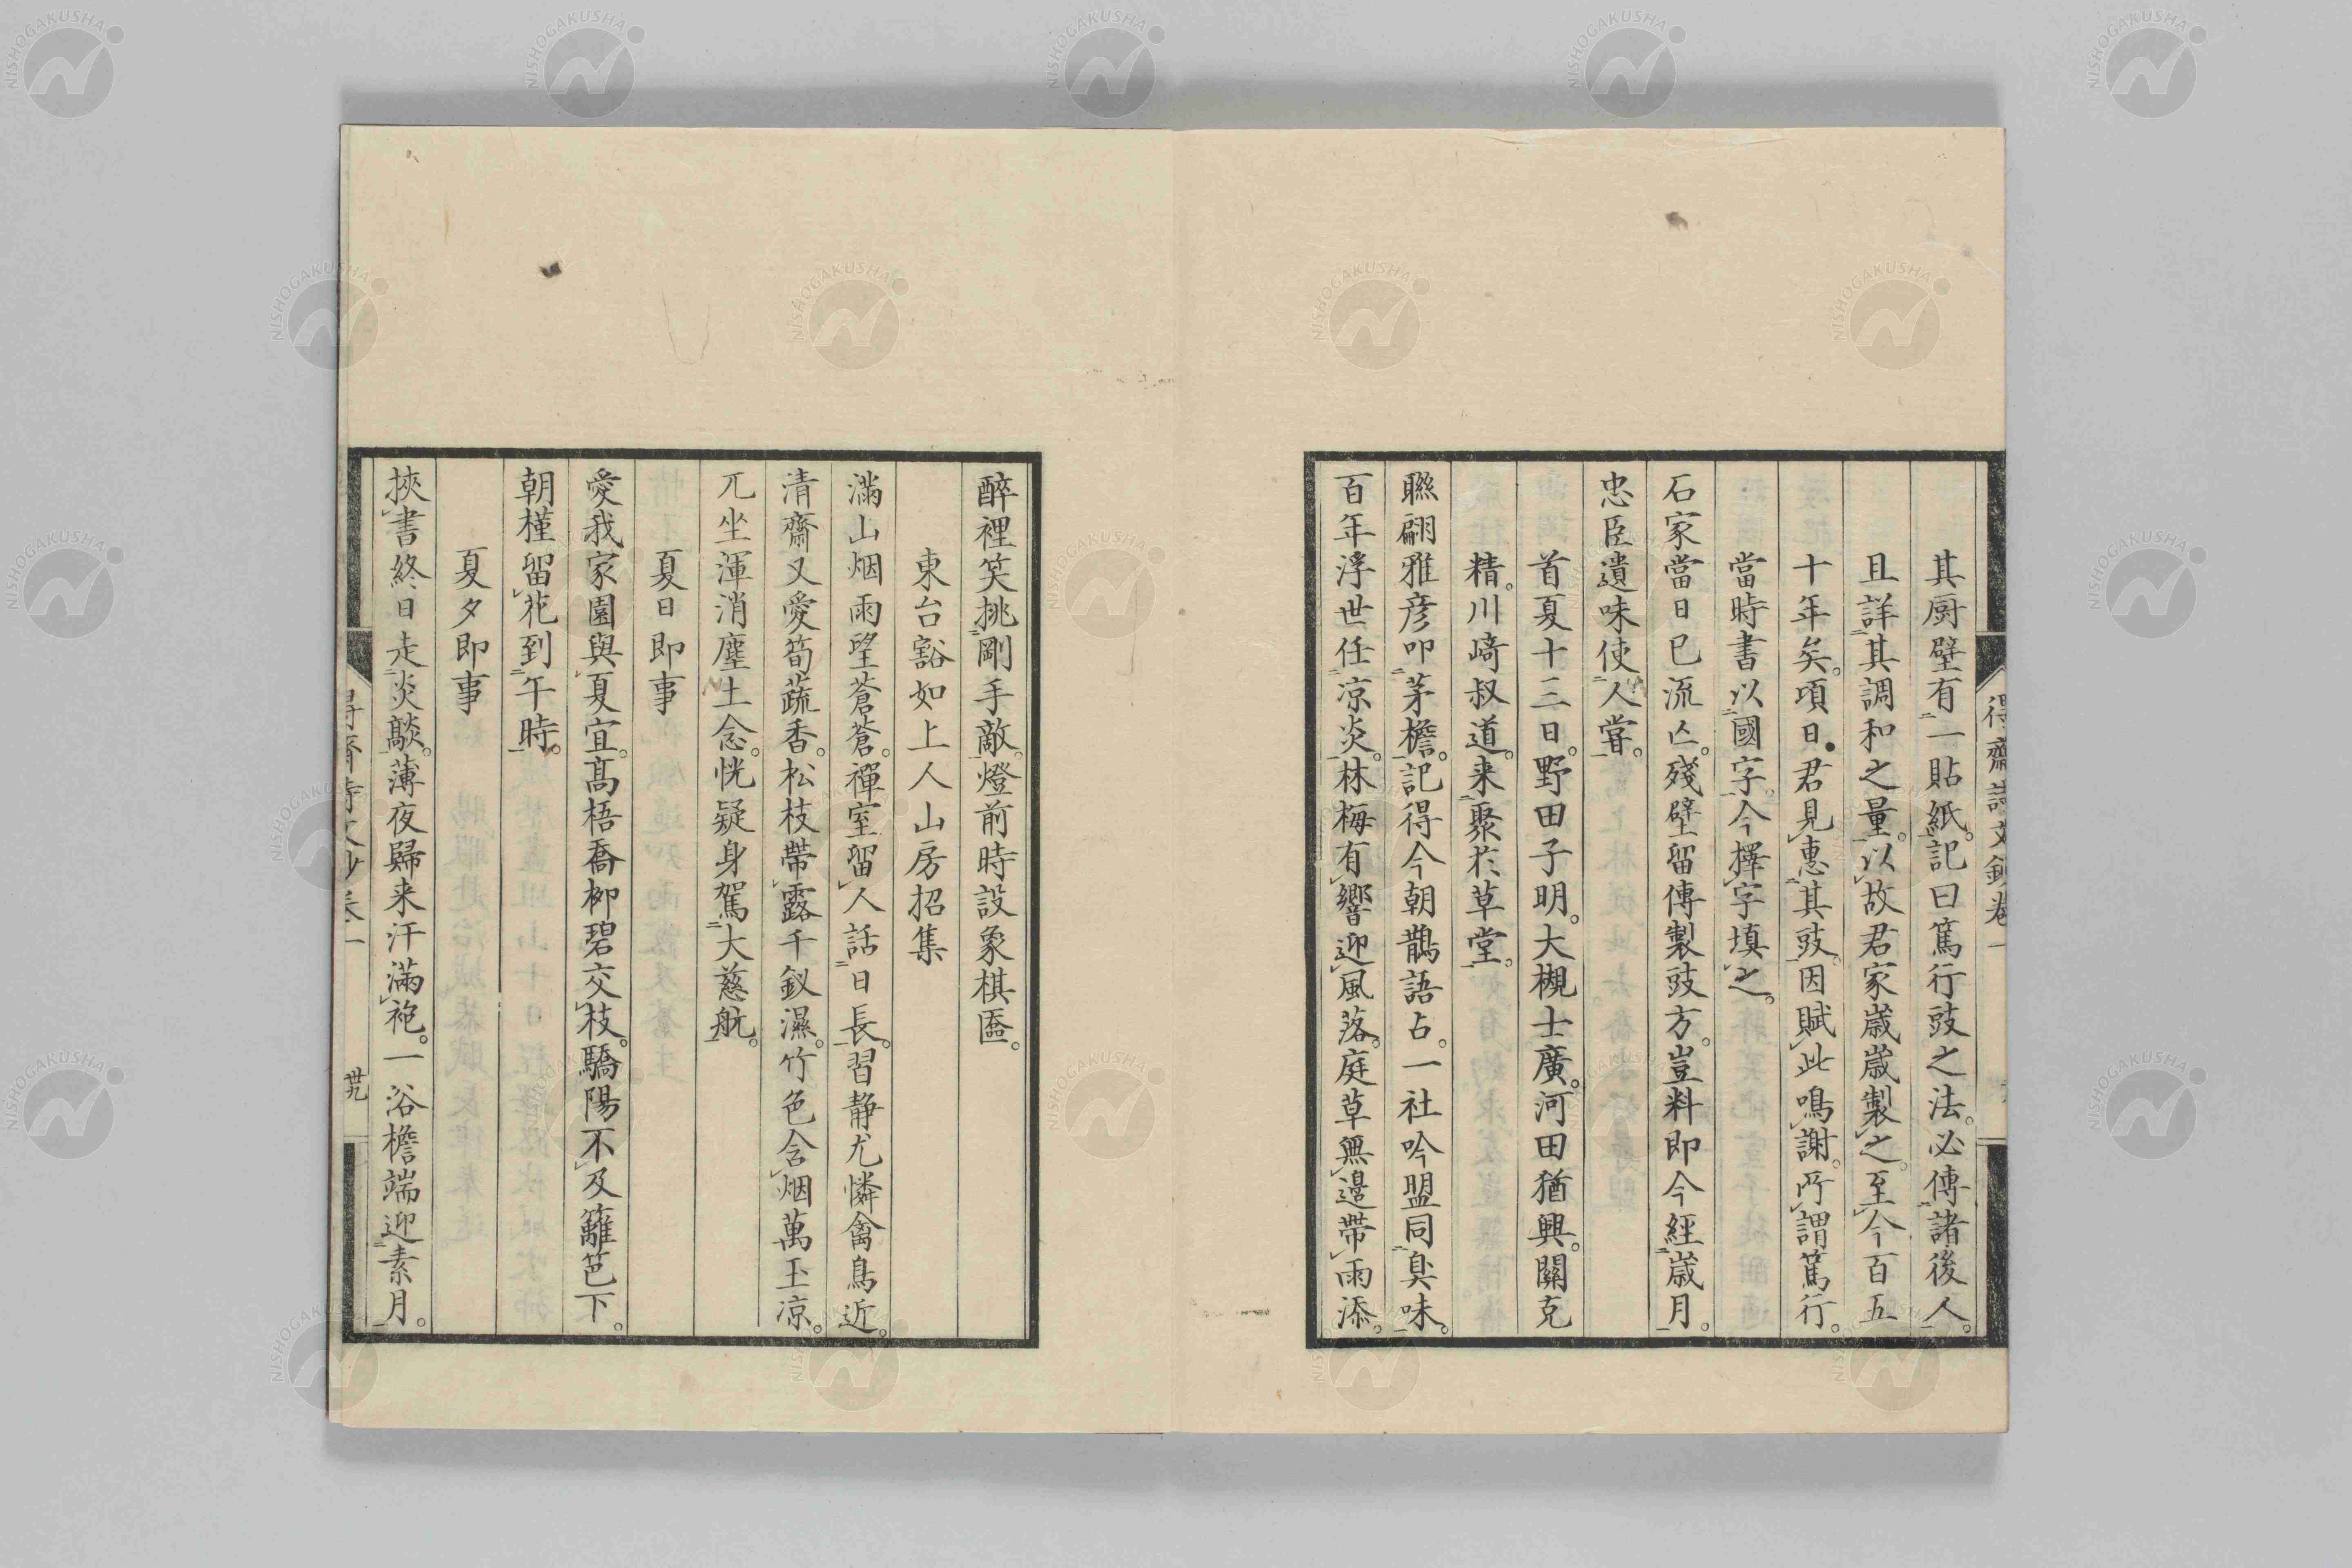 得齋詩文鈔卷一
其厨壁有一貼紙。記曰篤行豉之法。必傳諸後人。
且詳其調和之量。以故君家歳歳製之。至今百五
十年矣。項日君見惠其豉。因賦此鳴謝。所謂篤行。
當時書以國字。今擇字塡之。
石家當日已流亾。殘壁留傳製豉方。豈料即今經歳月。
忠臣遺味使人甞。
首夏十三日。野田子明。大槻士廣。河田猶興。關克
精。川﨑叔道。来聚於草堂。
聮翩雅彦叩茅檐。記得今朝鵲語占。一社吟盟同臭味。
百年浮世任凉炎。林梅有響迎風落。庭草無邊帶雨添。
醉裡笑挑剛手敵。燈前時設象棋匳。
東台豁如上人山房招集
滿山烟雨望蒼蒼。禪室留人話日長。習静尤憐禽鳥近。
清齋又愛筍蔬香。松枝帶露千釵濕。竹色含烟萬玉凉。
兀坐渾消塵土念。恍疑身駕大慈航。
夏日即事
愛我家園與夏宜。高梧喬柳碧交枝。驕陽不及籬笆下。
朝槿留花到午時。
夏夕即事
挾書終日走炎歊。薄夜歸来汗滿袍。一浴檐端迎素月。
得齋詩文鈔卷一
卅九
NISHOGAKUSHA